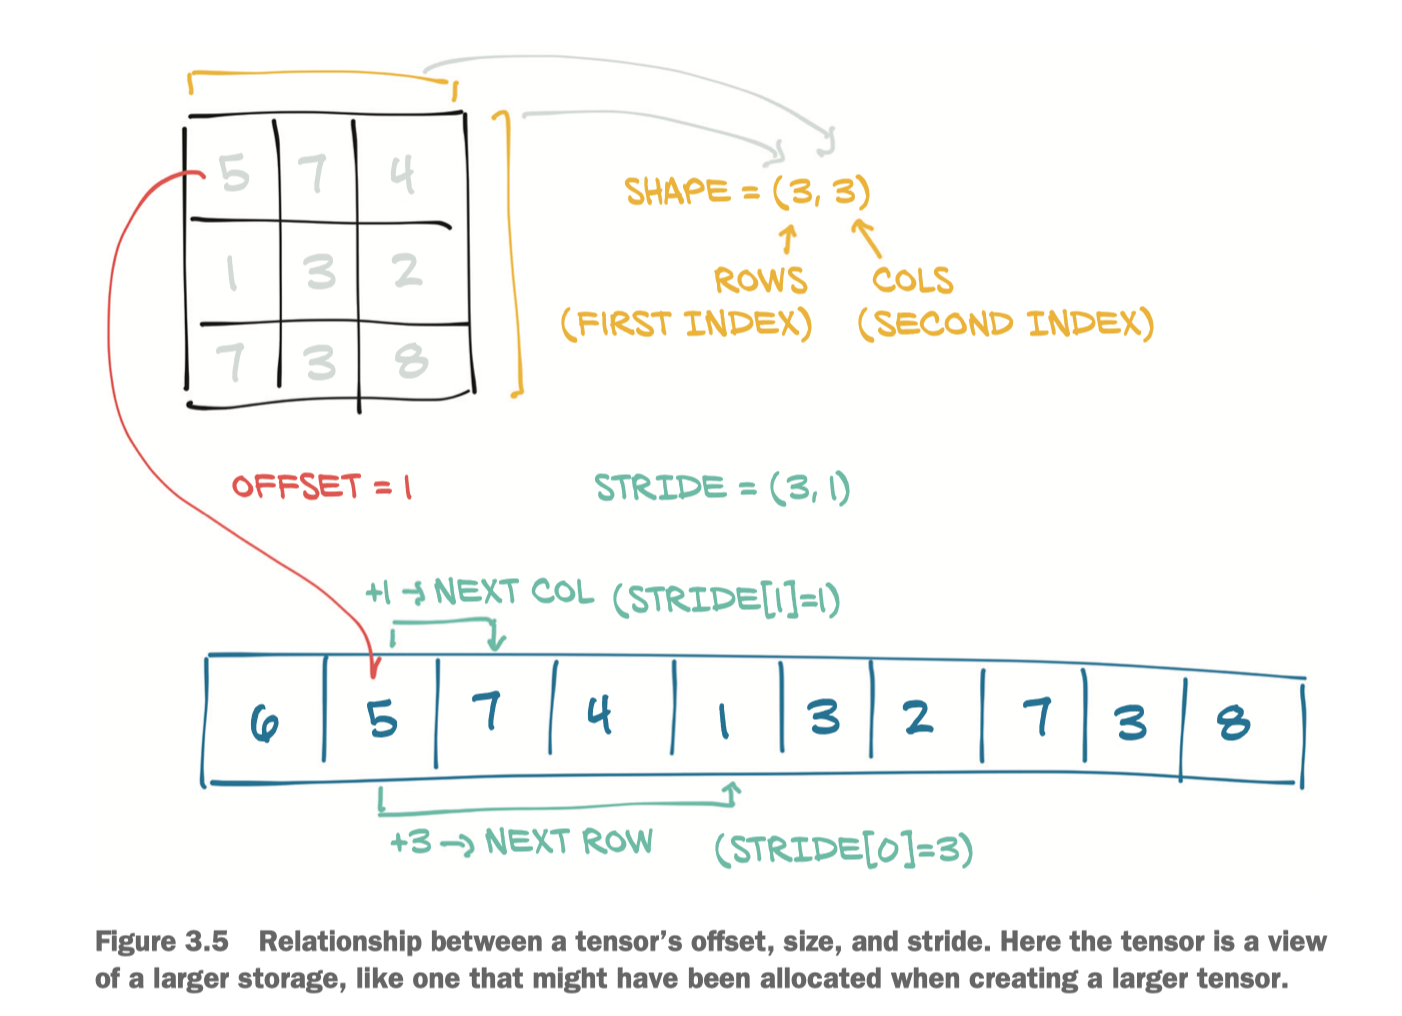 5 7 4
SHAPE = (3, 3)
1 3 2
ROWS COLS
(FIRST INDEX) (SECOND INDEX)
7 3 8
OFFSET = 1 STRIDE = (3, 1)
+1 → NEXT COL (STRIDE[1]=1)
6 5 7 4 1 3 2 7 3 8
+3 → NEXT ROW (STRIDE[0]=3)
Figure 3.5 Relationship between a tensor’s offset, size, and stride. Here the tensor is a view
of a larger storage, like one that might have been allocated when creating a larger tensor.